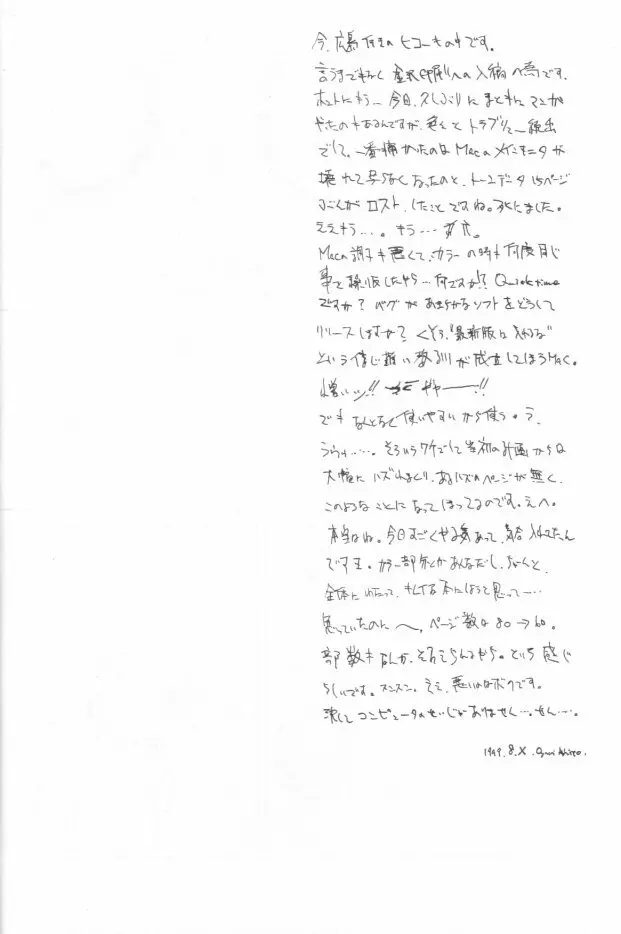 今、広島行きのヒコーキの中です。
言うまでもなく金沢印刷への入稿の為です。
ホントにもう… 今日、久しぶりにまともにマンガ
やったのもあるんですが、色々とトラブル 続出
でして。一番痛かったのは Macのメインモニタが
壊れて 見えなくなったのと、トーンデータ 15ページ
ぶんがロスト したことですね。死にました。
ええもう…。もう…
Mac 調子も悪くて、カラーの時も何度同じ
事を繰り返したやら… 何ですか!? Quicktime
ですか? バグがあきらかなソフトをどうして
リリースしますか? "最新版は 入れるな"
という信じ難い 教訓が成立してしまうMac。
憎いッ!! ギャーーー!!
でも なんとなく使いやすいから使う。う、
ううっ……。そういうワケでして 当初の計画からは
大幅に ハズれまくり、あるハズのページが無く、
このようなことになってしまってるのです。えへ。
本当はね。今日すごくやる気あって、気合 入れてたん
ですよ。カラー部分とかあんなだし、ちゃーんと、
全体にわたって、 本にしようと思って……
思っていたのに〜、ページ数は 80→60。
部数もなんか、そろえらんないやら。という感じ
らしいです。スンスン。ええ、悪いのはボクです。
決して コンピュータのせいじゃありません…。せん…。
1999. 8. X.